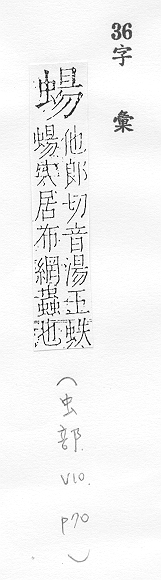 36字彙
蝪
他郎切音湯王蛈
蝪穴居布網蟲也
(虫部 V10. P70)